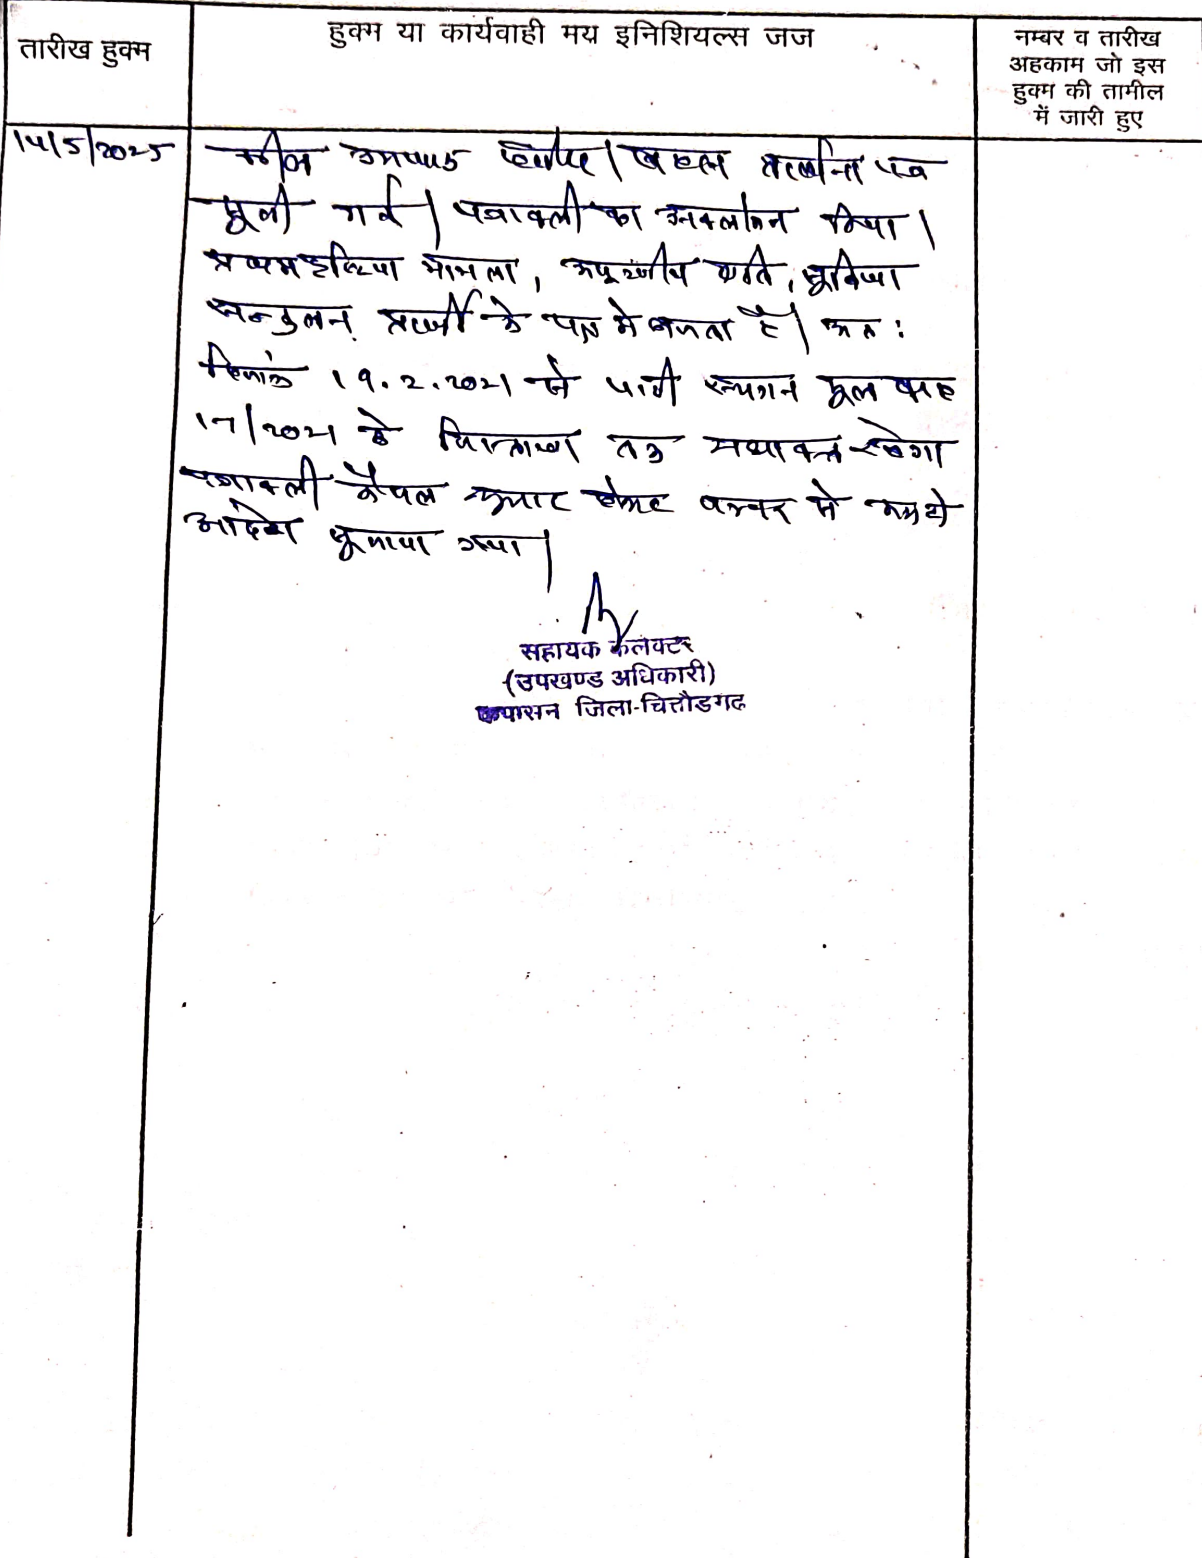 तारीख हुक्म
हुक्म या कार्यवाही मय इनिशियल्स जज
नम्बर व तारीख
अहकाम जो इस
हुक्म की तामील
में जारी हुए
14/5/2025
वकील उभयपक्ष उपस्थित। बहस प्रार्थना पत्र
सुनी गई। पत्रावली का अवलोकन किया।
प्रथम दृष्टिया मामला, अपूरणीय क्षति, सुविधा
सन्तुलन प्रार्थी के पक्ष मे बनता है। अतः
दिनांक 19.2.2021 से जारी स्थगन मूल वाद
17/2021 के निस्तारण तक यथावत रहेगा
पत्रावली फैसल शुमार होकर नम्बर से कम हो
आदेश सुनाया गया।
सहायक कलक्टर
(उपखण्ड अधिकारी)
कपासन जिला-चित्तौडगढ